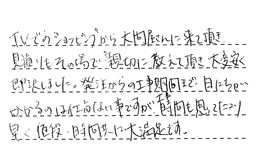 TVでのショッピングから大同屋さんに来て頂き
見積りもその場で親切に教えて頂き大変安く
即決しました。発注からの工事期間まで1ヶ月ちかい
かかるのは仕方ない事ですが時間を思ったより
早く、値段、時間共に大満足です。